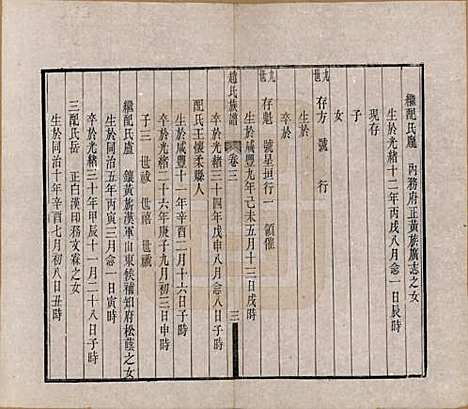 繼配氏盧　內務府正黃族廣志之女
生於光緒十二年丙戌八月念一日辰時
現存
子
女
九世　存方　號　行
生於
卒於
九世　存魁　號星垣行一　領催
生於咸豐九年己未五月十三日戌時
趙氏族譜　卷三　三
卒於光緒三十四年戊申八月念一日子時
配氏王懷柔縣人
生於咸豐十一年辛酉二月十六日子時
卒於光緒二十六年庚子九月初三日申時
子三　世祿　世禧　世
繼配氏盧　鑲黃旗漢軍山東候補知府松蔭之女
生於同治五年丙寅三月念一日寅時
卒於光緒三十年甲辰十一月二十八日子時
三配氏岳　正白漢印務文霖之女
生於同治十年辛酉七月初八日丑時